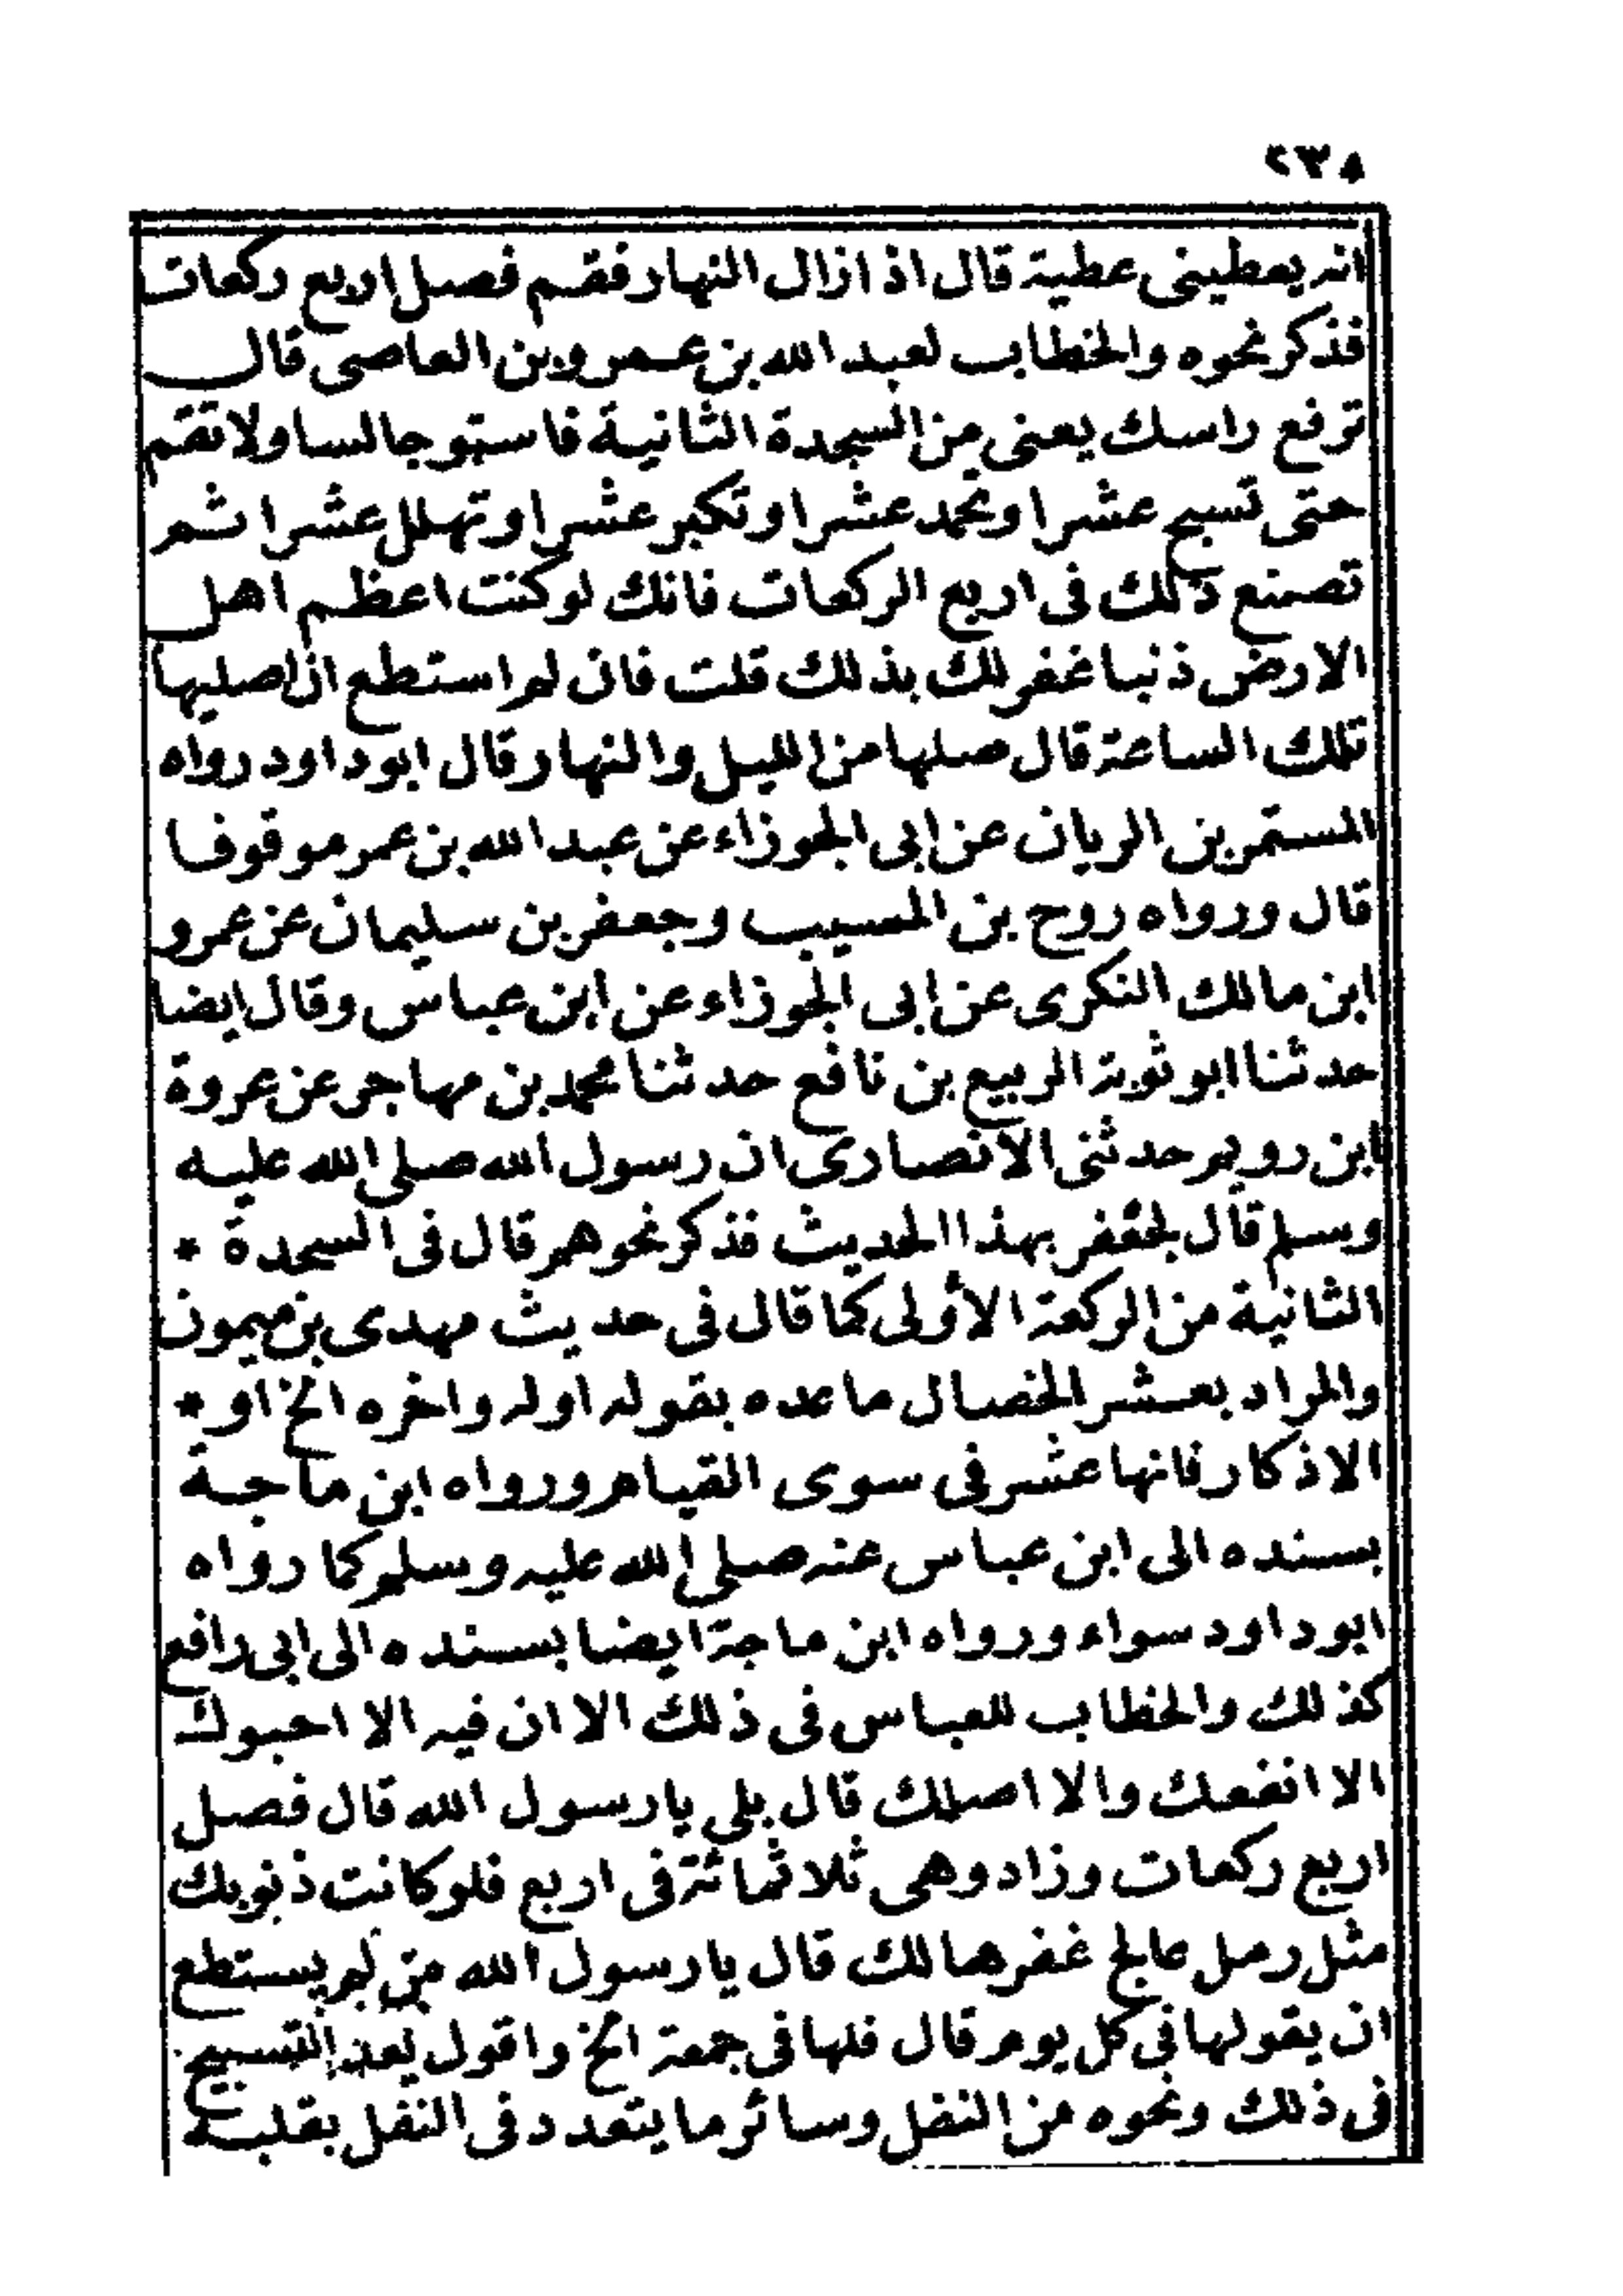 ٢٣٨
انه يعطينى عطية قال اذ ازال النهار فقم فصل اربع ركعات
فذكر نحوه والخطاب لعبد الله بن عمرو بن العاصى قال
ترفع راسك يعنى من السجدة الثانية فاستو جالسا ولا تقم
حتى تسبح عشرا وتحمد عشرا وتكبر عشرا وتهلل عشرا ثم
تصنع ذلك فى اربع الركعات فانك لو كنت اعظم اهل
الارض ذنبا غفر لك بذلك قلت فان لم استطع ان اصليها
تلك الساعة قال صلها من الليل والنهار قال ابو داود رواه
المستمر بن الريان عن ابى الجوزاء عن عبد الله بن عمر موقوفا
قال ورواه روح بن المسيب وجعفر بن سليمان عن عمرو
ابن مالك النكرى عن ابى الجوزاء عن ابن عباس وقال ايضا
حدثنا ابو توبة الربيع بن نافع حدثنا محمد بن مهاجر عن عروة
ابن رويم حدثنى الانصارى ان رسول الله صلى الله عليه
وسلم قال لجعفر بهذا الحديث فذكر نحوهم قال فى السجدة *
الثانية من الركعة الأولى كما قال فى حديث مهدى بن ميمون
والمراد بعشر الخصال ما عده بقوله اوله واخره الخ او *
الاذكار فانها عشر فى سوى القيام ورواه ابن ماجة
بسنده الى ابن عباس عنه صلى الله عليه وسلم كما رواه
ابو داود سواء ورواه ابن ماجة ايضا بسنده الى ابى رافع
كذلك والخطاب للعباس فى ذلك الا ان فيه الا احبوك
الا انفعك والا اصلك قال بلى يا رسول الله قال فصل
اربع ركعات وزاد وهى ثلاثمائة فى اربع فلو كانت ذنوبك
مثل رمل عالج غفرها لك قال يا رسول الله من لم يستطع
ان يقولها فى كل يوم قال قلها فى جمعة الخ واقول يعد التسبيح
فى ذلك ونحوه من النفل وسائر ما يتعدد فى النفل بقلبه